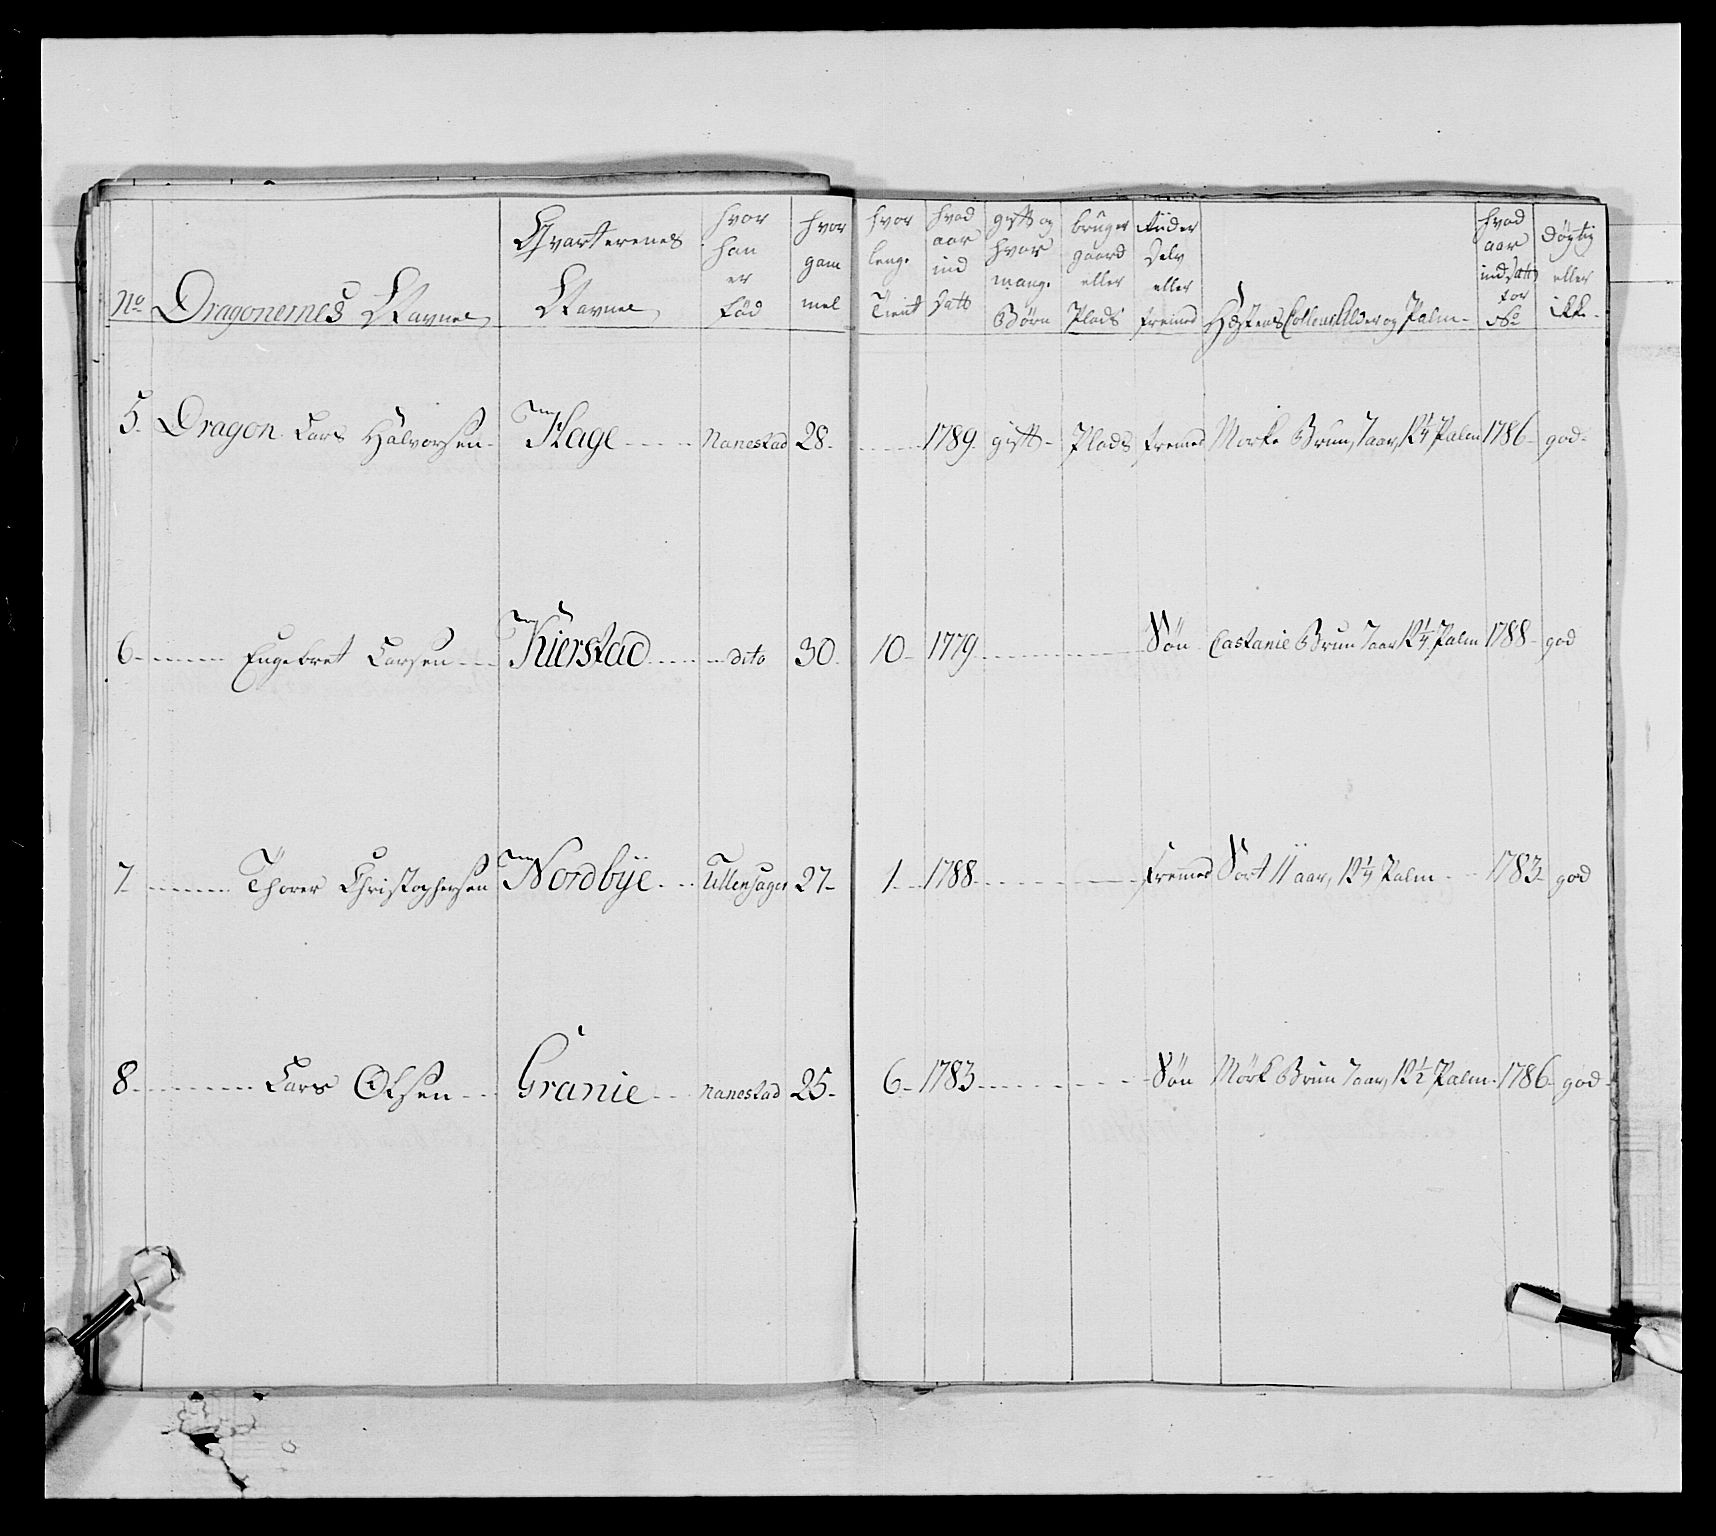 No Dragonernes Navne Qvarterenes Navne hvor han er fød hvor gammel hvor lenge Tient hvad aar ind satt gift og hvor mange Børn bruger gaard eller Plads Finder Selv eller fremed Hæstens Colleur Alder og Palm hvad aar ind Satt for No døgtig eller ikke
5. Dragon Lars Halvorsen Hage Nanestad 28 1789 gift Plads fremed Morke Brun 7 aar, 12¼ Palm 1786 god
6 Engebret Larsen Kierstad dito 30 10 1779 Søn Castanie Brun 7 aar 12¼ Palm 1788 god
7 Thorer Christophersen Nordbÿe Ullensager 27 1 1788 fremed Sort 11 aar, 12¼ Palm 1783 god
8 Lars Olsen Granie Nanestad 25 6 1783 Søn Mörk Brun 7 aar, 12½ Palm 1786 god